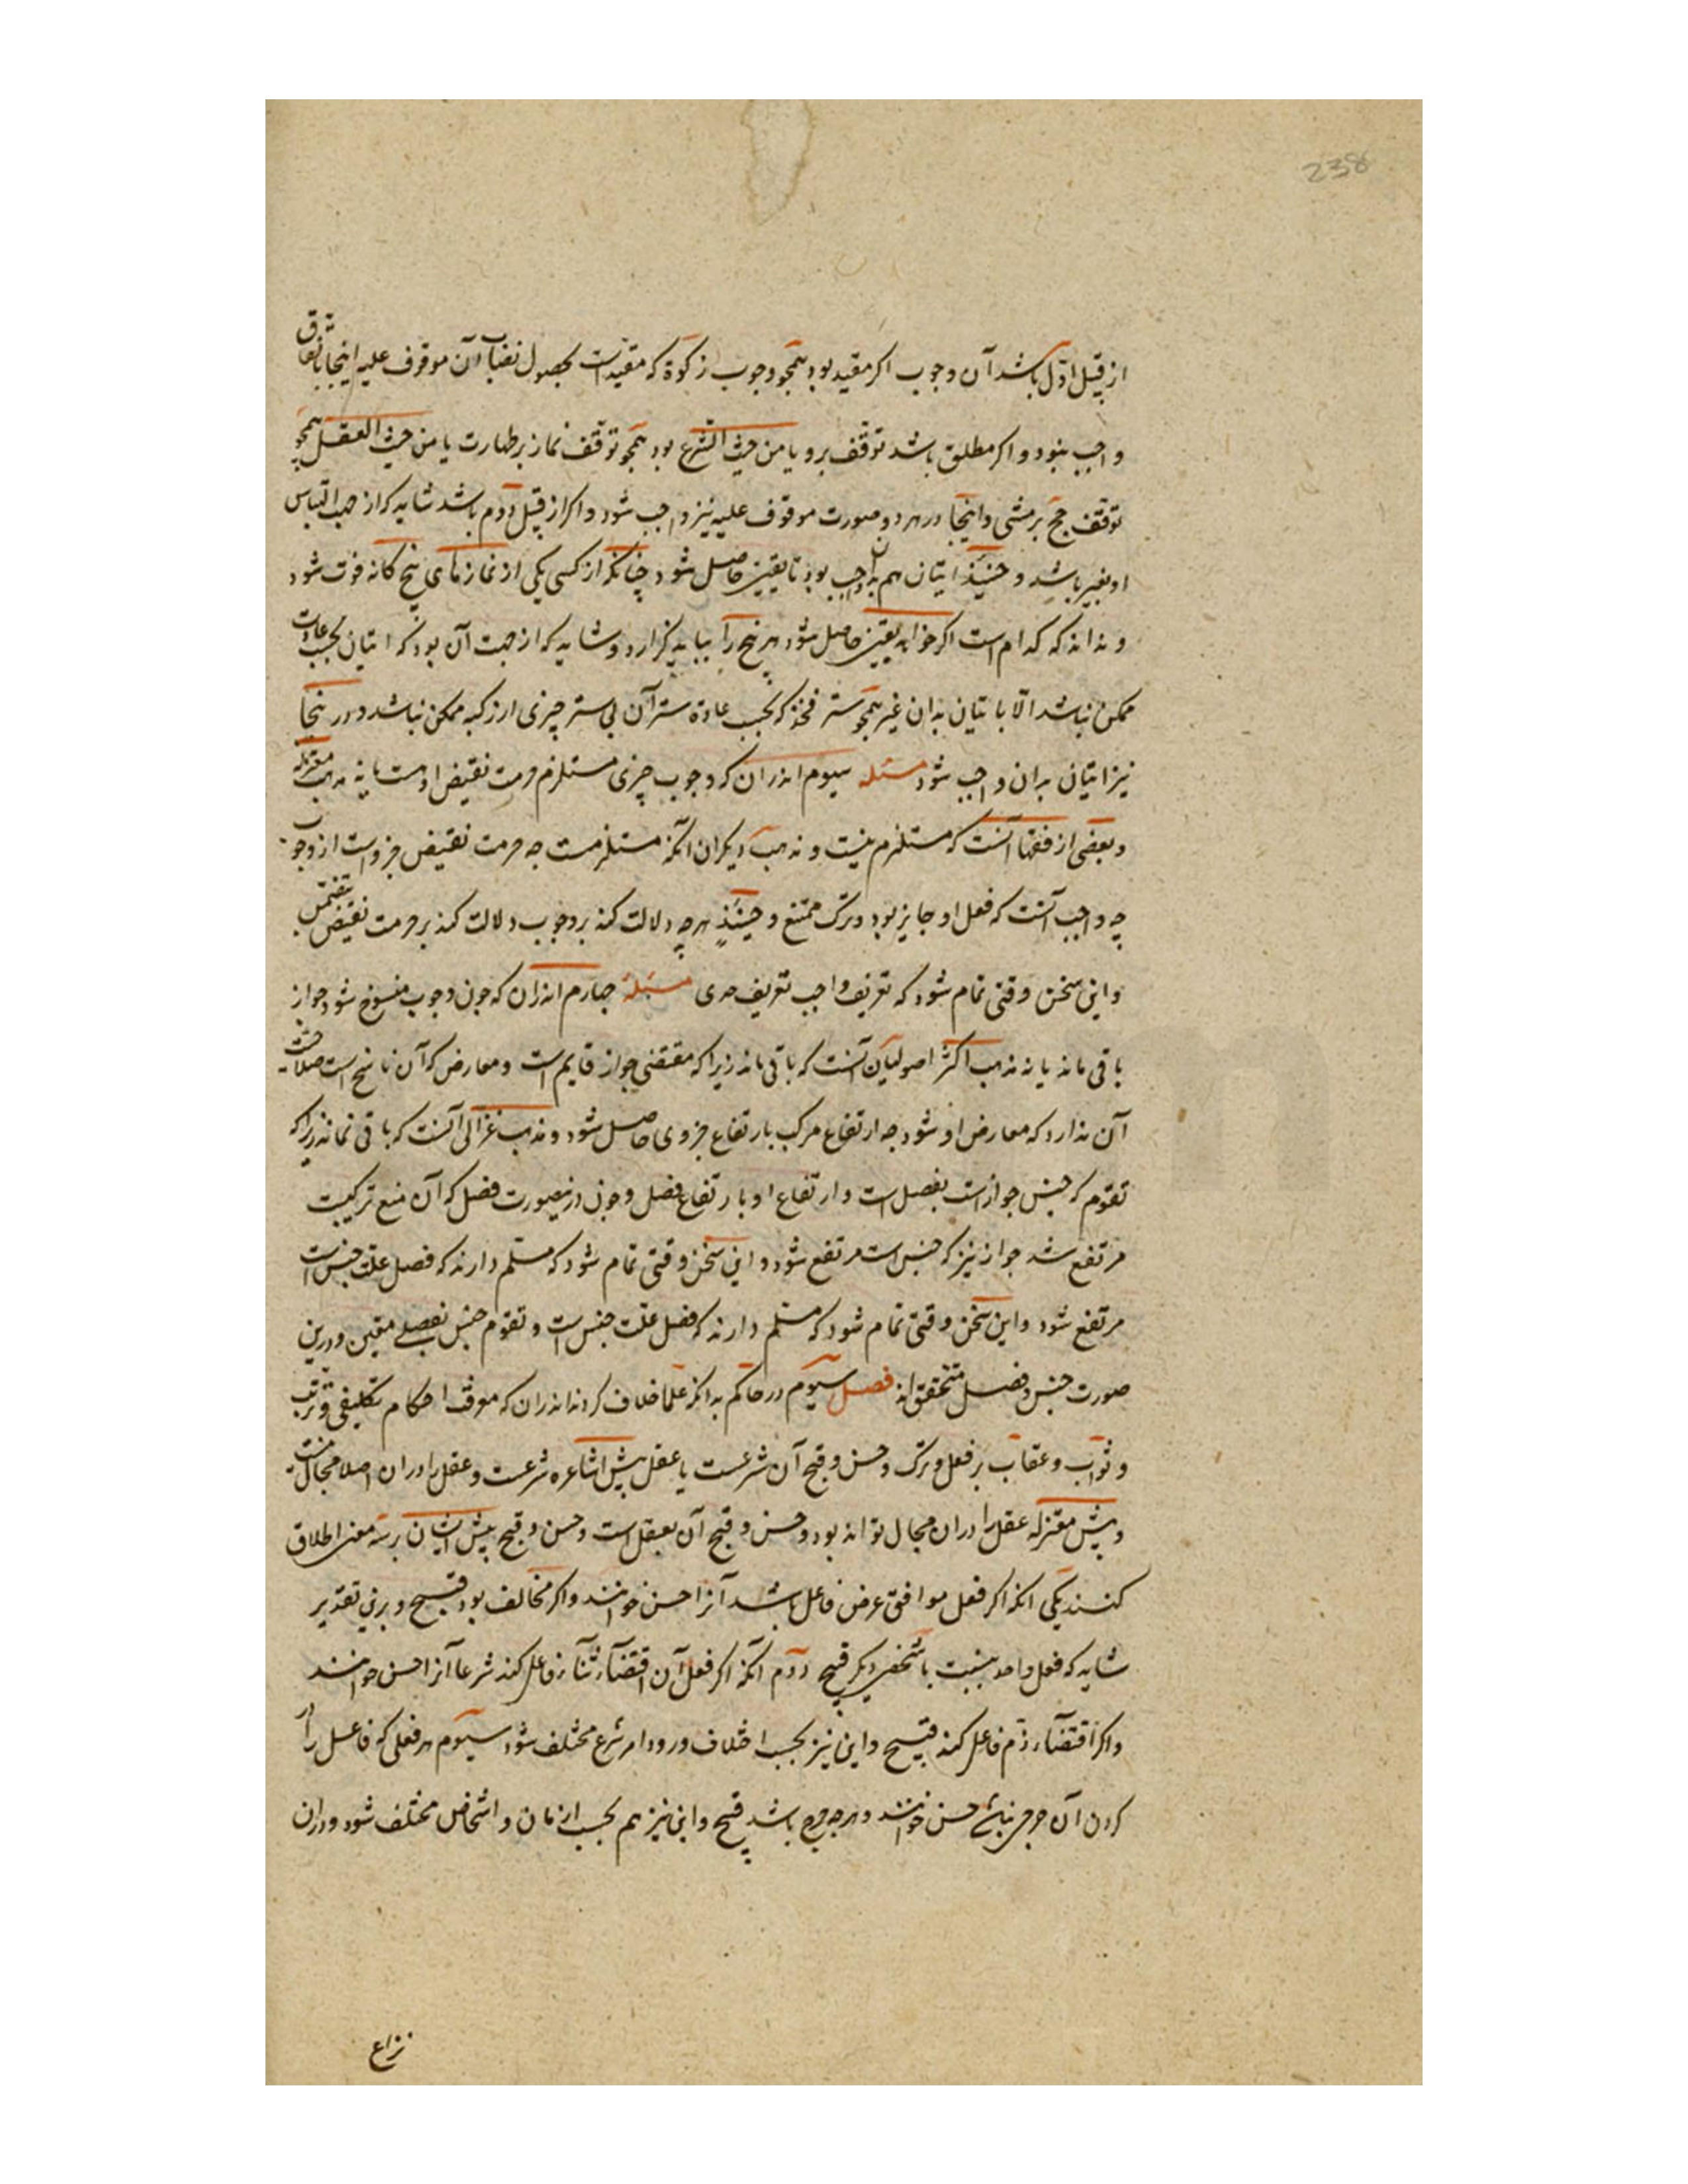 238
از قبیل اوّل باشد آن وجوب اکر مقید بود همجو وجوب زکوة که مقیدست بحصول نصاب آن موقوف علیه اینجا باتفاق
واجب نبود و اکر مطلق باشد توقف برو یا من حیث الشرع بود همجو توقف نماز بر طهارت یا من حیث العقل همجو
توقف حج بر مشی و اینجا در هر دو صورت موقوف علیه نیز واجب شود و اکر از قبیل دوم باشد شاید که از جهت التباس
او بغیر باشد و حینئذ اتیان بهمه واجب بود تا یقین حاصل شود چنانکه از کسی یکی از نمازهای پنج کانه فوت شود
و نداند که کدام است اکر خواهد یقین حاصل شود هر پنج را بباید کزارد و شاید که از جهت آن بود که اتیان بحسب عادت
ممکن نباشد الّا باتیان بدان غیر همجو ستر فخذ که بحسب عادة ستر آن بی ستر چیزی از رکبه ممکن نباشد و درینجا
نیز اتیان بدان واجب شود مسئله سیوم اندران که وجوب چیزی مستلزم حرمت نقیض اوست یا نه مذهب معتزله
و بعضی از فقها آنست که مستلزم نیست و مذهب دیکران آنکه مستلزمست جه حرمت نقیض جزو است از وجوب
چه واجب آنست که فعل او جایز بود و ترک ممتنع و حینئذٍ هرچه دلالت کند بر وجوب دلالت کند بر حرمت نقیض بتضمن
و این سخن وقتی تمام شود که تعریف واجب تعریف حدی مسئله جهارم اندران که جون وجوب منسوخ شود جواز
باقی ماند یا نه مذهب اکثر اصولیان آنست که باقی ماند زیرا که مقتضی جواز قایم است و معارض که آن ناسخ است صلاحیت
آن ندارد که معارض او شود جه ارتفاع مرکب بارتفاع جزوی حاصل شود و مذهب غزالی آنست که باقی نماند زیرا که
تقوم که جنس جوازست بفصل است و ارتفاع او بارتفاع فصل و جون درینصورت فصل که آن منع ترکیست
مرتفع شد جواز نیز که جنس است مرتفع شود و این سخن وقتی تمام شود که مسلّم دارند که فصل علت جنس است
مرتفع شود و این سخن وقتی تمام شود که مسلم دارند که فصل علت جنس است و تقوم جنس بفصلی معین و درین
صورت جنس و فصل متحقق اند فصل سیوم در حاکم بدانکه علما خلاف کردند اندران که موقف احکام تکلیفی و ترتب
و ثواب و عقاب بر فعل و ترک و حسن و قبح آن شرعست یا عقل پیش اشاعره شرعست و عقل را دران اصلا مجال نیست
و پیش معتزله عقل را دران مجال تواند بود و حسن و قبح آن بعقل است و حسن و قبح پیش ایشان بر سه معنی اطلاق
کنند یکی آنکه اکر فعل موافق غرض فاعل باشد آنرا حسن خوانند و اکر مخالف بود قبیح و برین تقدیر
شاید که فعل واحد بنسبت با شخصی دیکر قبیح دوم آنکه اکر فعل آن اقتضآء ثنآء فاعل کند شرعا آنرا حسن خوانند
و اکر اقتضآء ذم فاعل کند قبیح و این نیز بحسب اختلاف ورود امر شرع مختلف شود سیوم هر فعلی که فاعل را در
کردن آن حرجی نباشد حسن خوانند و هرچه حرج باشد قبیح و این نیز هم بحسب ازمان و اشخاص مختلف شود و دران
نزاع